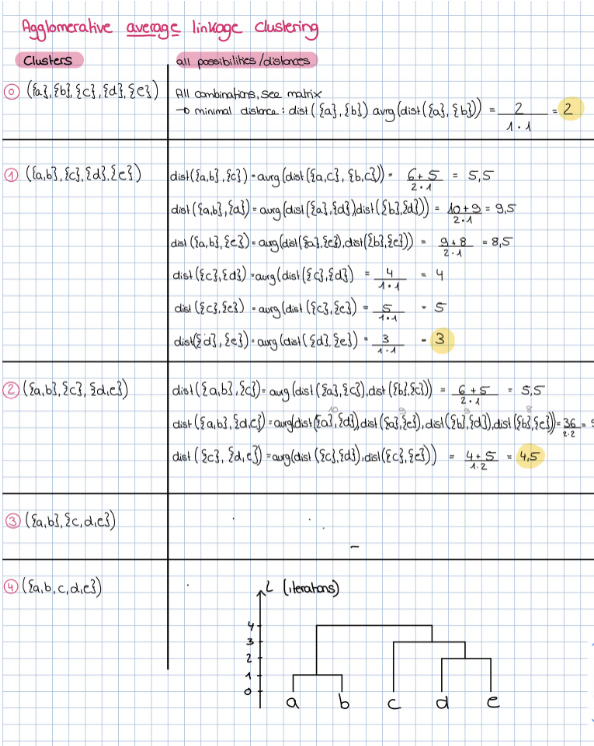 Agglomerative average linkage clustering
Clusters all possibilities/distances
⓪ ({a},{b},{c},{d},{e}) All combinations, see matrix
→ minimal distance: dist({a},{b}) avrg(dist({a},{b})) = 2/1·1 = 2
① ({a,b},{c},{d},{e}) dist({a,b},{c}) = avrg(dist({a,c},{b,c})) = 6+5/2·1 = 5,5
dist({a,b},{d}) = avrg(dist({a},{d})dist({b},{d})) = 10+9/2·1 = 9,5
dist({a,b},{e}) = avrg(dist({a},{e}),dist({b},{e})) = 9+8/2·1 = 8,5
dist({c},{d}) = avrg(dist({c},{d}) = 4/1·1 = 4
dist({c},{e}) = avrg(dist({c},{e}) = 5/1·1 = 5
dist({d},{e}) = avrg(dist({d},{e}) = 3/1·1 = 3
② ({a,b},{c},{d,e}) dist({a,b},{c}) = avrg(dist({a},{c}),dist({b},{c})) = 6+5/2·1 = 5,5
dist({a,b},{d,e}) = avrg(dist({a},{d}),dist({a},{e}),dist({b},{d}),dist({b},{e})) = 36/2·2 =
dist({c},{d,e}) = avrg(dist({c},{d}),dist({c},{e})) = 4+5/1·2 = 4,5
③ ({a,b},{c,d,e})
④ ({a,b,c,d,e})
L (iterations)
4
3
2
1
0
a b c d e